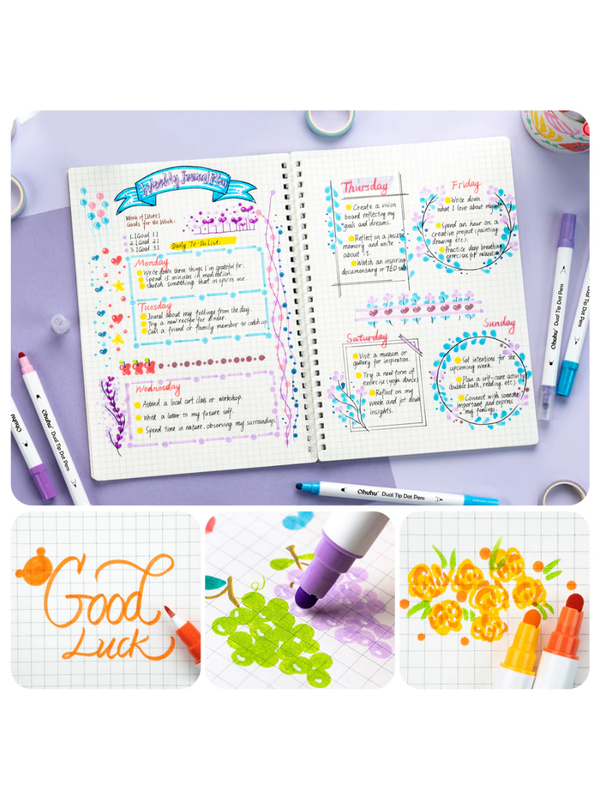 Weekly Journal Plan
Week of [Date]
Goals for the Week:
1. [Goal 1]
2. [Goal 2]
3. [Goal 3]
Daily To Do List:
Monday
Write down three things I'm grateful for.
Spend 15 minutes in meditation.
Sketch something that inspires me.
Tuesday
Journal about my feelings from the day.
Try a new recipe for dinner.
Call a friend or family member to catch up.
Wednesday
Attend a local art class or workshop.
Write a letter to my future self.
Spend time in nature, observing my surroundings.
Thursday
Create a vision
board reflecting my
goals and dreams.
Reflect on a
memory and write
about it.
Watch an inspiring
documentary or TED talk
Friday
Write down
what I love about myself
Spend an hour on a
creative project (painting,
drawing, etc.).
Practice deep breathing
exercises for relaxation.
Saturday
Visit a museum or
gallery for inspiration.
Try a new form of
exercise (yoga, dance)
Reflect on my
week and jot down
insights.
Sunday
Set intentions for the
upcoming week.
Plan a self-care activity
(bubble bath, reading, etc.).
Connect with someone
important and express
my feelings.
Ohuhu Dual Tip Dot Pen
Ohuhu
Ohuhu Dual Tip Dot Pen
Dual Tip Dot Pen
Ohuhu Dual Tip Dot Pen
Good
Luck